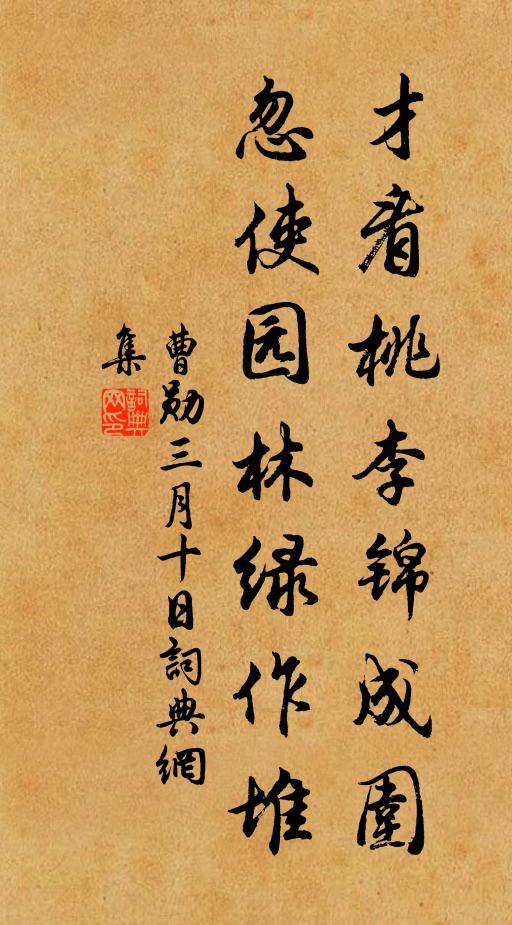 才看桃李锦成圍
忽使园林绿作堆
曹勋三月十日詞典網
集
詞典
网印